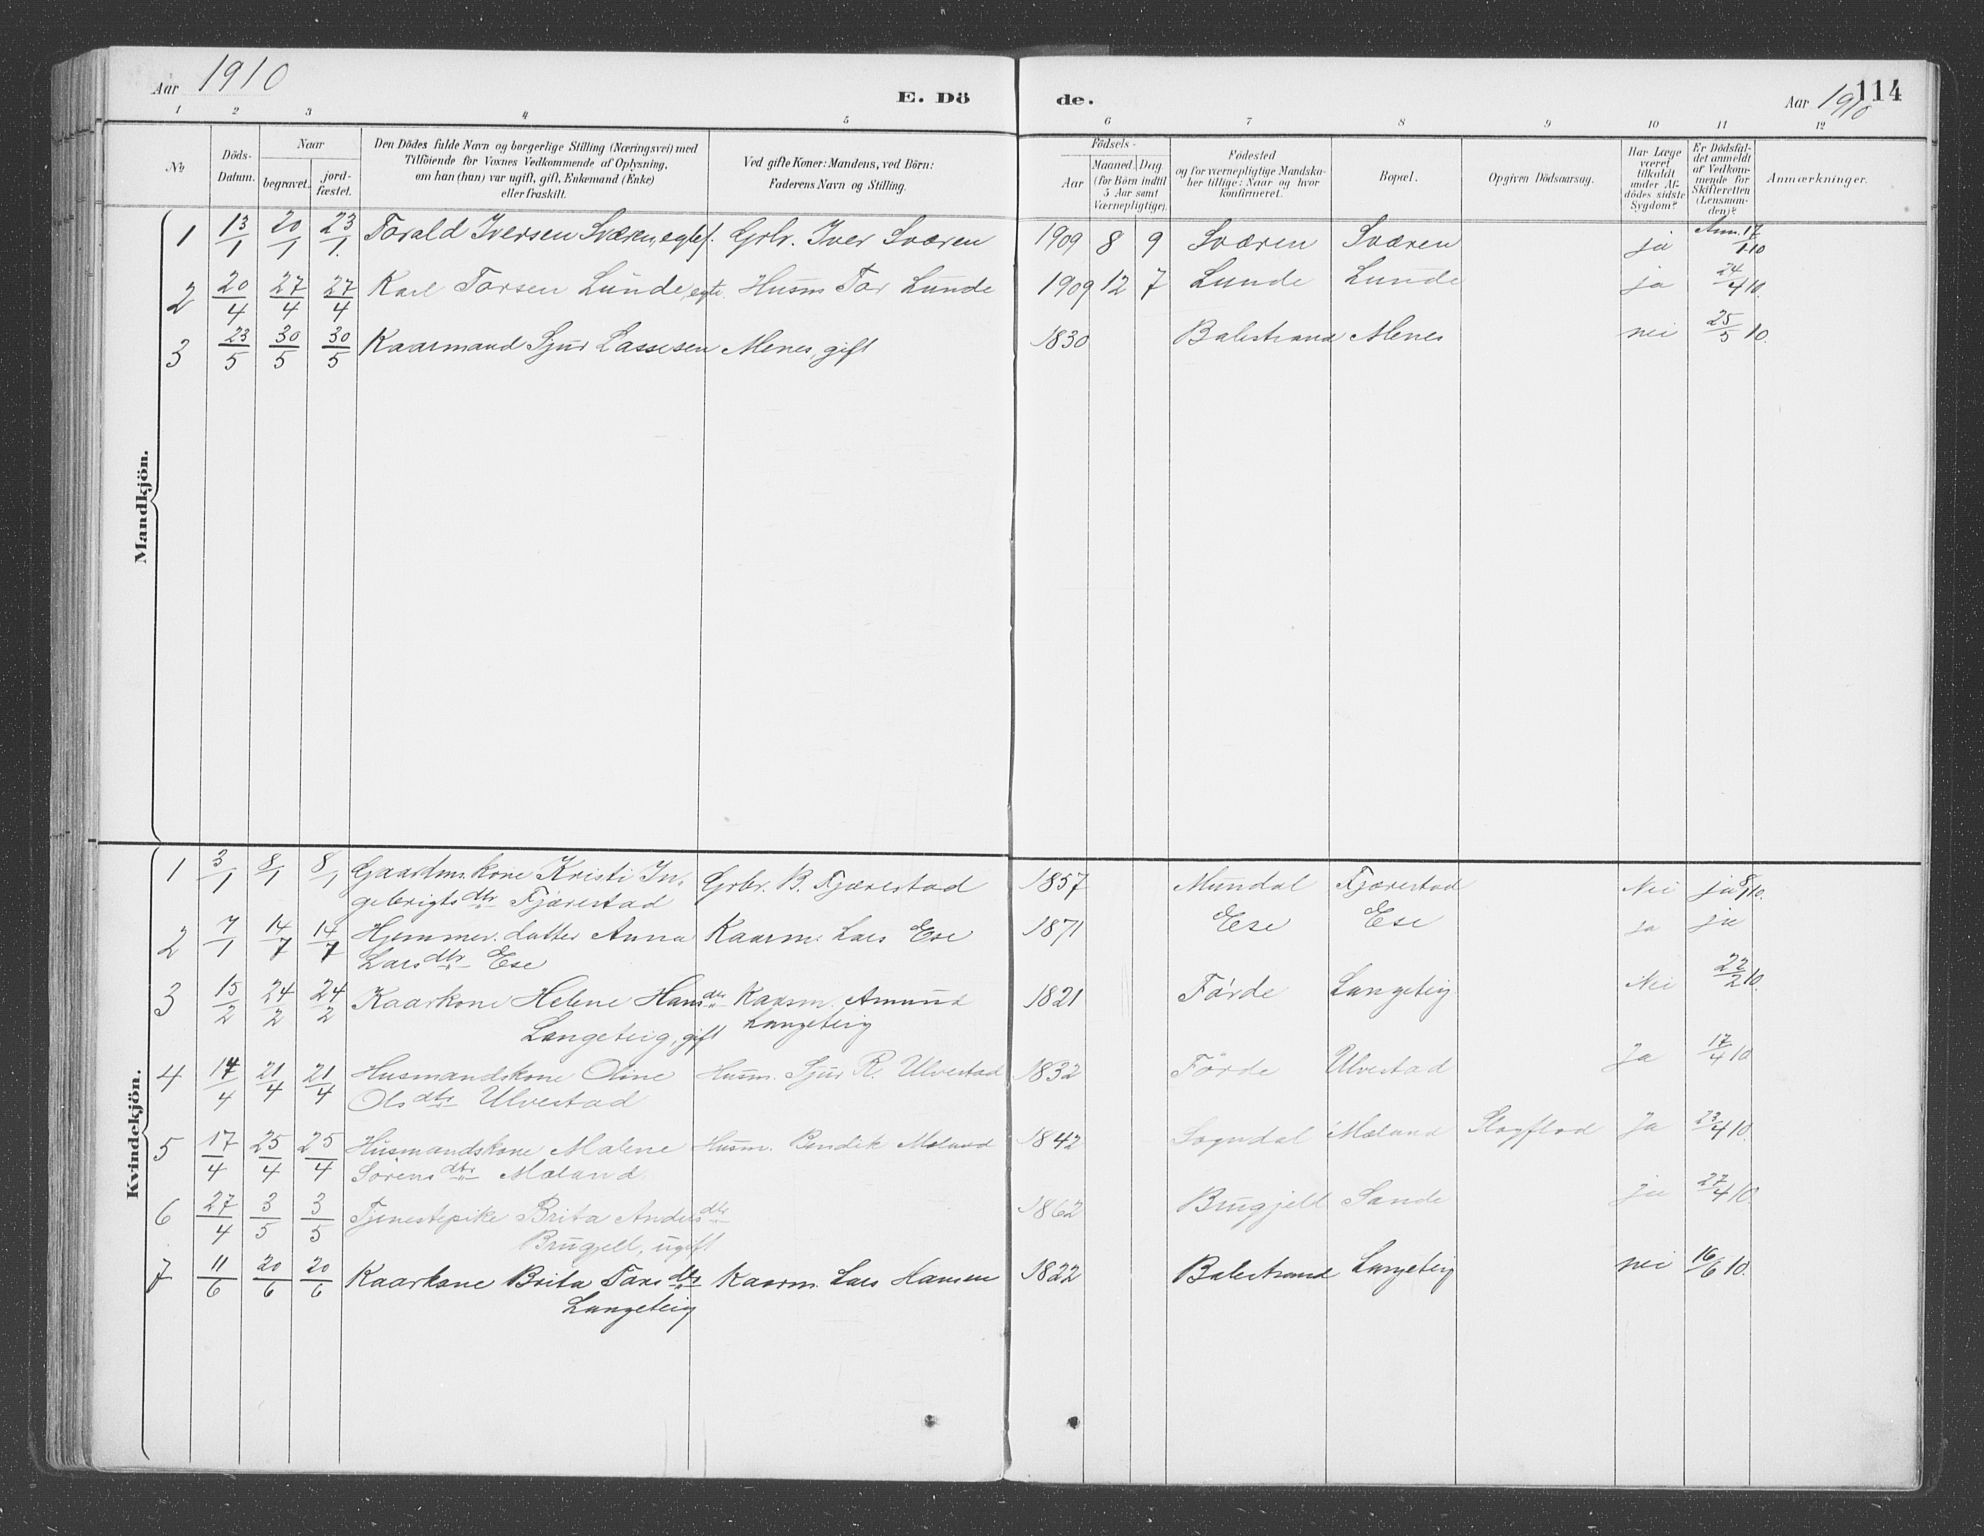 Aar 1910 E. Dö de. Aar 1910 114
1 2 3 4 5 6 7 8 9 10 11 12
No Döds-Datum. Naar begravet. jord-fæstet. Den Dödes fulde Navn og borgerlige Stilling (Næringsvei) med Tilföiende for Voxnes Vedkommende af Oplysning, om han (hun) var ugift, gift, Enkemand (Enke) eller fraskilt. Ved gifte Koner: Mandens, ved Börn: Faderens Navn og Stilling. Födsels- Aar Maaned. Dag. (for Börn indtil 5 Aar samt Værnepligtige). Födested og for værnepligtige Mandska-ber tillige: Naar og hvor konfirmeret. Bopæl. Opgiven Dödsaarsag. Har Læge været tilkaldt under Af-dödes sidste Sygdom? Er Dödsfal-det anmeldt af Vedkom-mende for Skifteretten (Lensman-den)? Anmærkninger.
Mandkjön.
1 13/1 20/1 23/1. Torald Iversen Sværen, egtef. Grbr. Iver Sværen 1909 8 9 Sværen Sværen ja Anm. 17/1 10
2 20/4 27/4 27/4 Karl Torsen Lunde, egte. Husm Tor Lunde 1909 12 7 Lunde Lunde ja 24/4 10.
3 23/5 30/5 30/5 Kaarmand Sjur Lassesen Menes, gift 1830 Balestrand Menes nei 25/5 10.
Kvindekjön.
1 3/1 8/1 8/1 Gaardm.kone Kristi In- Grbr. B. Fjærestad 1857 Mundal Fjærestad Nei ja 8/1 10.
gebrigtsdtr Fjærestad
2 7/1 14/7 14/7 Hjemmev. datter Anna Kaarm. Lars Ese 1871 Ese Ese ja ja
Larsdtr Ese
3 15/2 24/2 24/2 Kaarkone Helene Hansdtr Kaarm. Amund 1821 Førde Langeteig Nei 22/2 10.
Langeteig, gift Langeteig
4 14/4 21/4 21/4 Husmandskone Oline Husm. Sjur R. Ulvestad 1832 Førde Ulvestad Ja 17/4 10
Olsdtr Ulvestad
5 17/4 25/4 25/4 Husmandskone Malene Husm. Bendik Mæland 1842 Sogndal Mæland Slagflod Ja 23/4 10.
Sörensdtr Mæland.
6 27/4 3/5 3/5 Tjenestepike Brita Andersdtr 1862 Brugjell Sande ja 27/4 10.
Brugjell, ugift
7 11/6 20/6 20/6 Kaarkone Brita Torsdtr Kaarm. Lars Hansen 1822 Balestrand Langeteig nei 16/6 10.
Langeteig